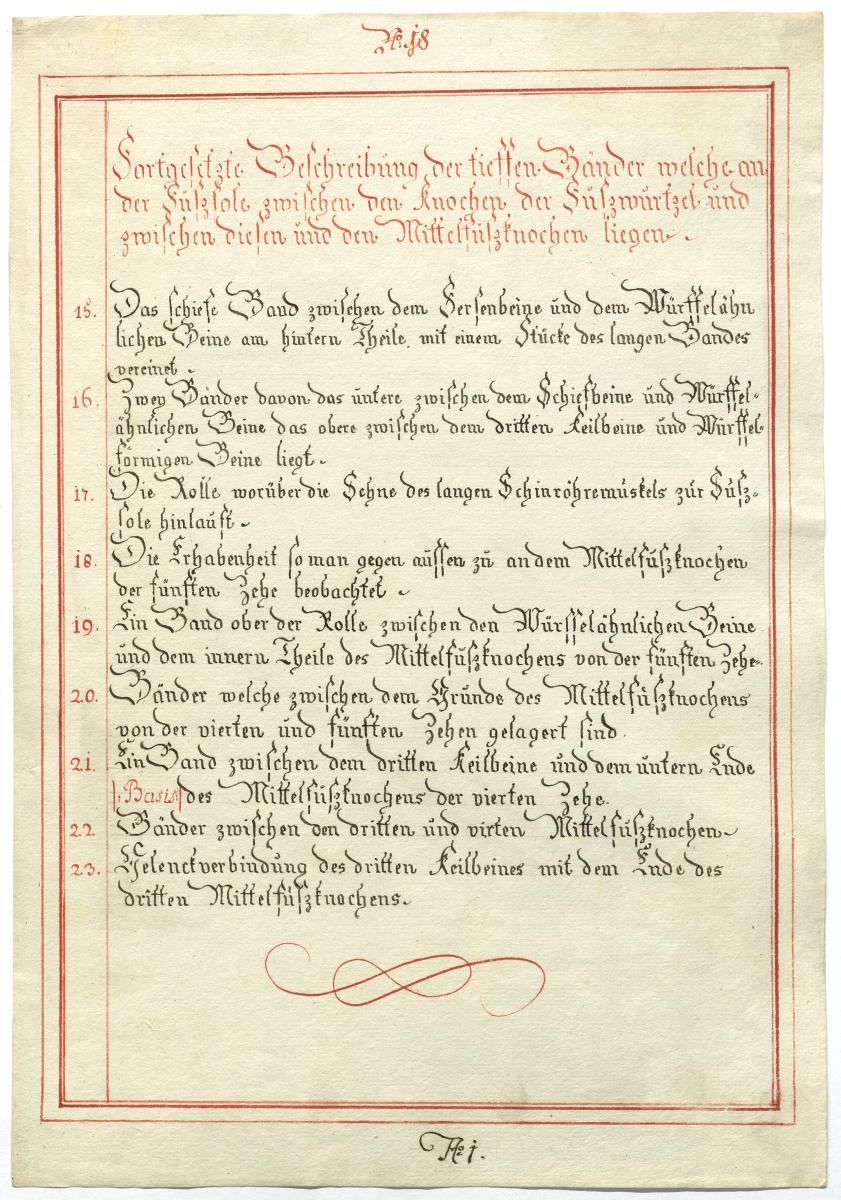 No. 18
Fortgesetzte Beschreibung der tieffen Bänder welche an
der Fuszsole zwischen den Knochen der Fuszwurtzel und
zwischen diesen und den Mittelfuszknochen liegen.
15. Das schiefe Band zwischen dem Fersenbeine und dem Würffelähn
lichen Beine am hintern Theile, mit einem Stücke des langen Bandes
vereinet.
16. Zwey Bänder davon das untere zwischen dem Schiefbeine und Würffel-
ähnlichen Beine das obere zwischen dem dritten Keilbeine und Würffel-
förmigen Beine liegt.
17. Die Rolle worüber die Sehne des langen Schinröhremuskels zur Fusz-
sole hinlauft.
18. Die Erhabenheit so man gegen aussen zu an dem Mittelfuszknochen
der fünften Zehe beobachtet.
19. Ein Band ober der Rolle zwischen den Würsselähnlichen Beine
und dem innern Theile des Mittelfuszknochens von der fünften Zehe.
20. Bänder welche zwischen dem Grunde des Mittelfuszknochens
von der vierten und fünften Zehen gelagert sind.
21. Ein Band zwischen dem dritten Keilbeine und dem untern Ende
|:Basis:| des Mittelfuszknochens der vierten Zehe.
22. Bänder zwischen den dritten und virten Mittelfuszknochen.
23. Gelenckverbindung des dritten Keilbeines mit dem Ende des
dritten Mittelfuszknochens.
No. 1.